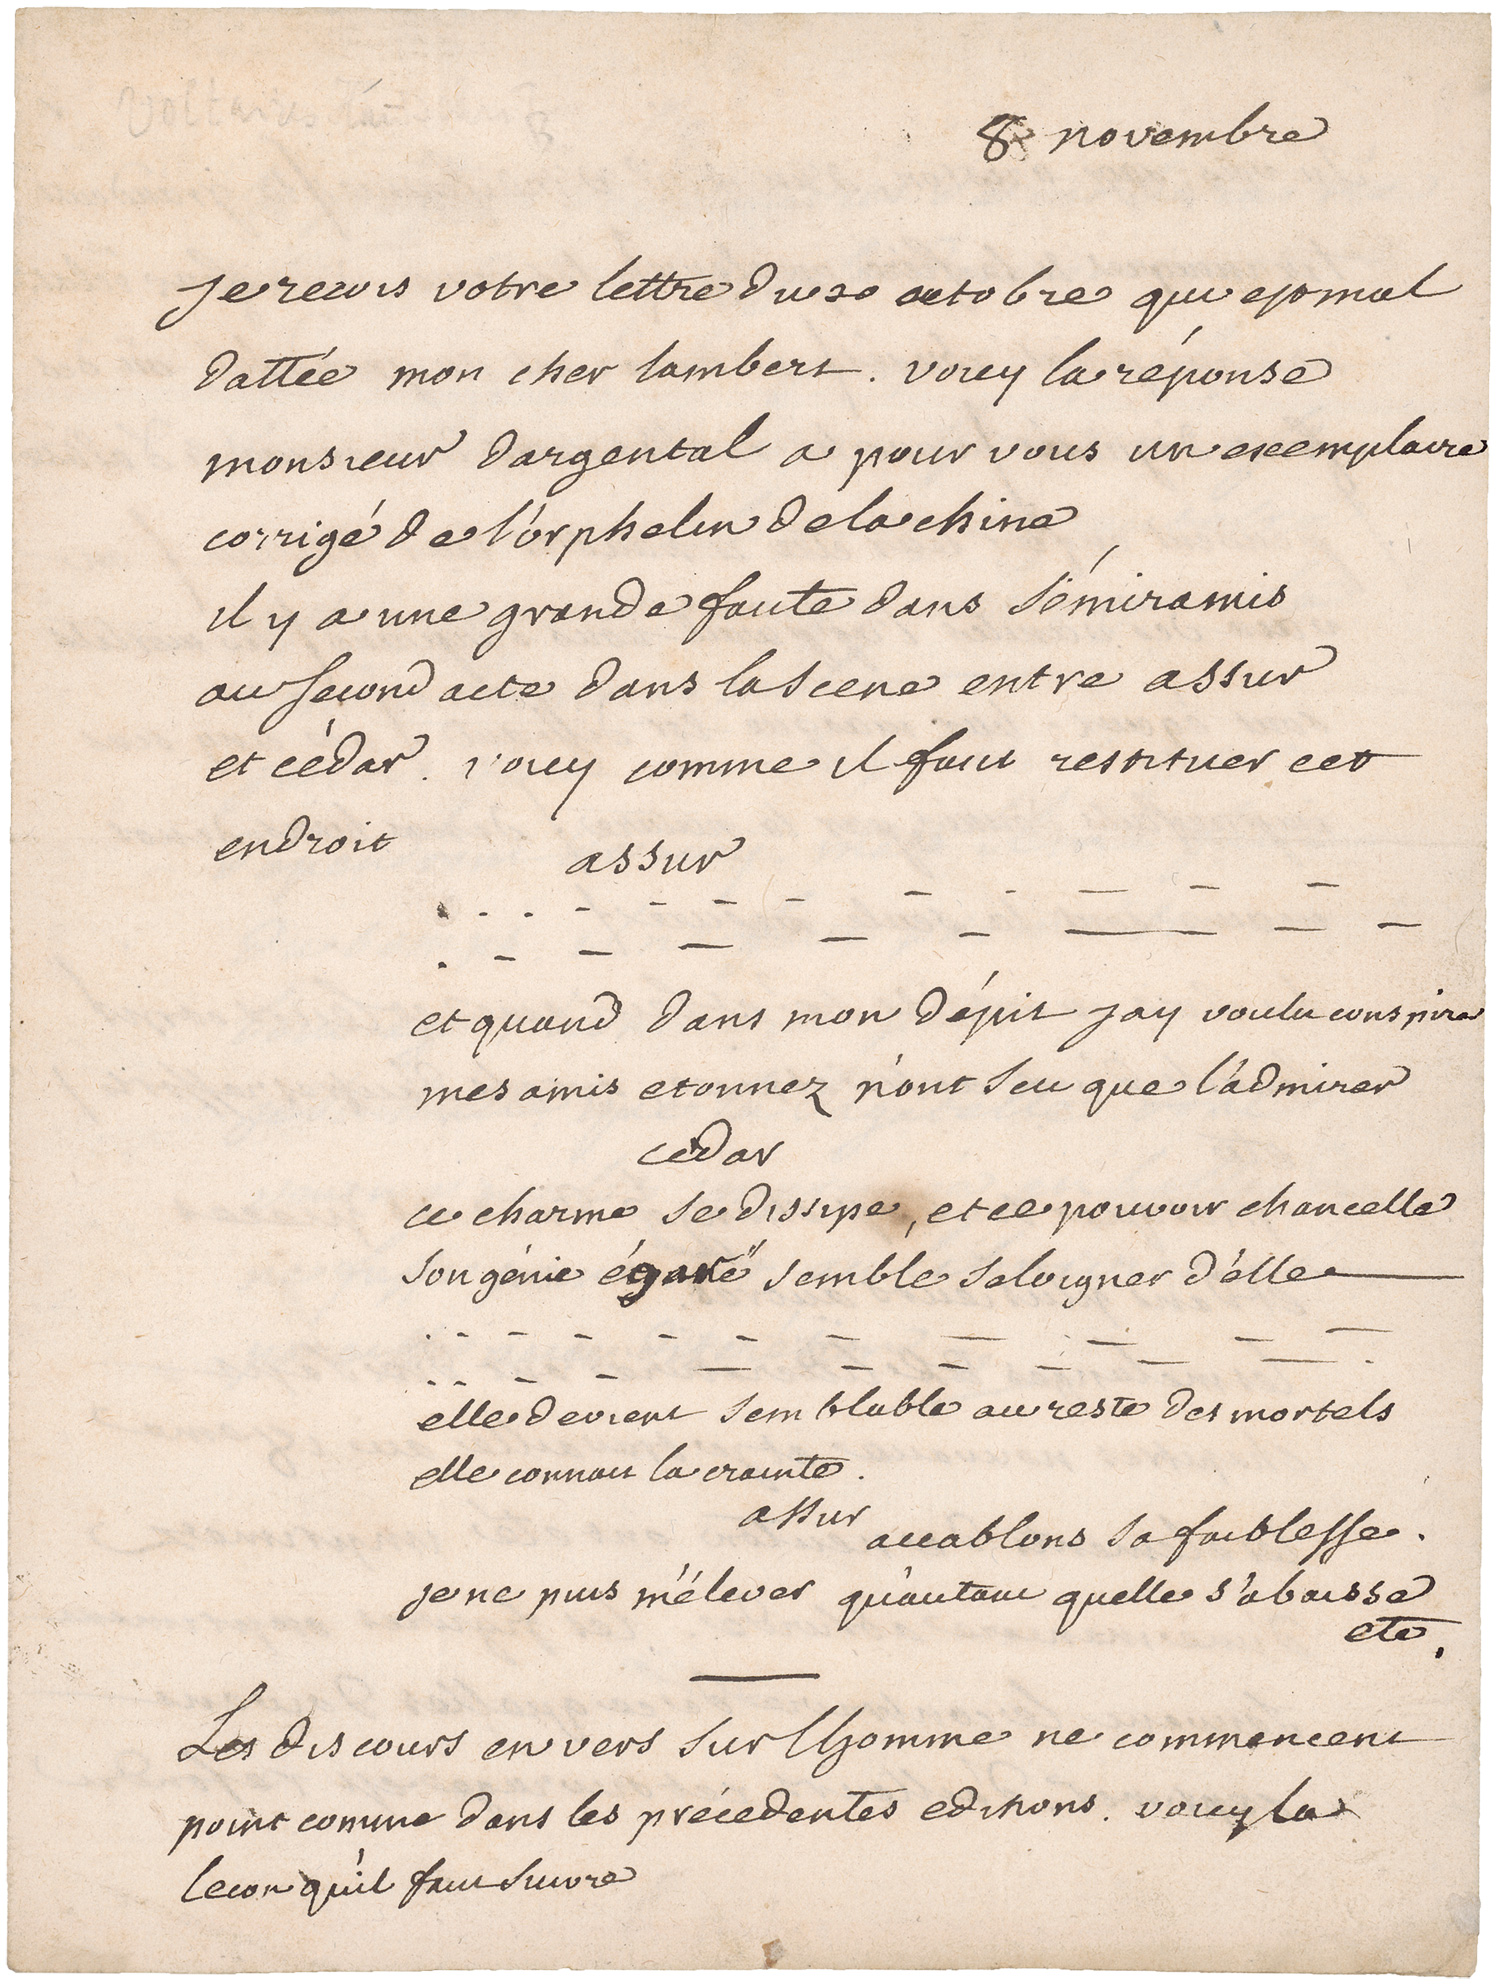 8 novembre
je recois votre lettre du 20 octobre qui est mal
dattée mon cher lambert. voicy la réponse
monsieur dargental a pour vous un exemplaire
corrigé de l'orphelin de la chine
il y a une grande faute dans sémiramis
au second acte dans la scene entre assur
et cédar. voicy comme il faut restituer cet
endroit
assur
et quand dans mon dépit jay voulu conspirer
mes amis etonnez n'ont seu que l'admirer
cedar
ce charme se dissipe, et ce pouvoir chancelle
son génie égaré semble seloigner d'elle
elle devient semblable au reste des mortels
elle connait la crainte.
assur
accablons sa faiblesse.
je ne puis m'élever qu'autant quelle s'abaisse
etc.
Les discours en vers sur lhomme ne commencent
point comme dans les précedentes editions. voicy la
lecon qu'il faut suivre